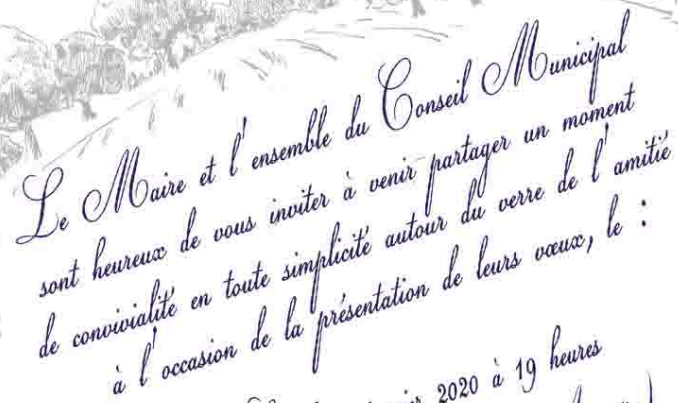 Le Maire et l'ensemble du Conseil Municipal
sont heureux de vous inviter à venir partager un moment
de convivialité en toute simplicité autour du verre de l'amitié
à l'occasion de la présentation de leurs vœux, le :
2020 à 19 heures